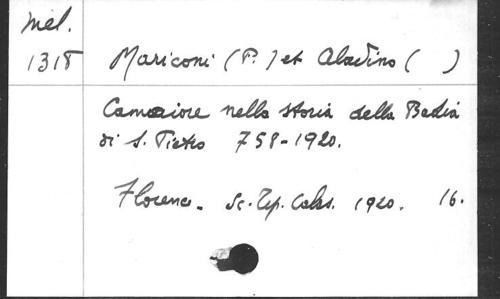 Mél.
1318 Mariconi (P.) et Aladino ( )
Camaiore nella storia della Badia
di S. Pietro 758-1920.
Florence. Sc. Tip. Calas. 1920. 16.